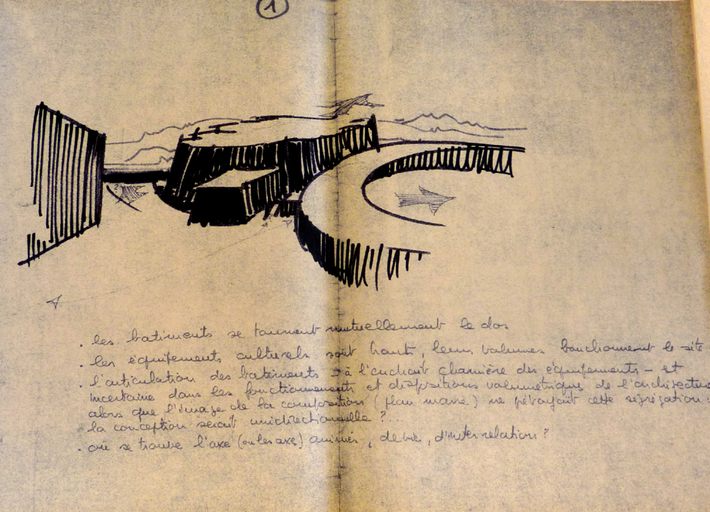 1
. les batiments se tournent mutuellement le dos
. les équipements culturels sont hauts, leurs volumes bouchonnent le site
. l'articulation des batiments - à l'endroit charnière des équipements - et
incertaine dans les fonctionnements et dispositions volumetrique de l'architecture
alors que l'image de la composition (plan masse) ne prévoyait cette ségrégation
la conception serait unidirectionnelle ?...
. où se trouve l'axe (ou les axes) animés, de vie, d'interrelations ?